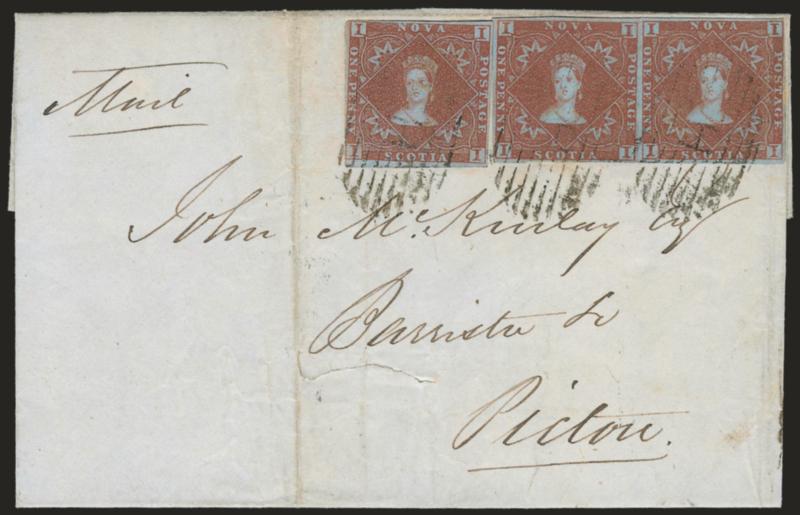 I NOVA I
ONE PENNY POSTAGE
I SCOTIA I
I NOVA I
ONE PENNY POSTAGE
I SCOTIA I
I NOVA I
ONE PENNY POSTAGE
I SCOTIA I
Mail
John McKinlay Esqr
Barrister &c
Pictou.